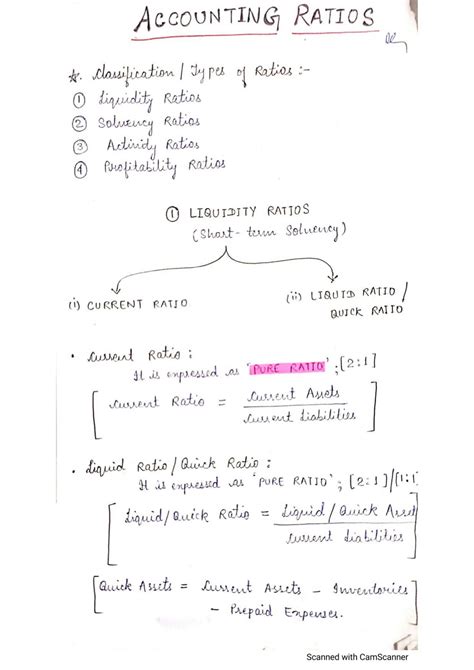 ACCOUNTING RATIOS
☆. Classification / Types of Ratios :-
① Liquidity Ratios
② Solvency Ratios
③ Activity Ratios
④ Profitability Ratios
① LIQUIDITY RATIOS
(Short-term Solvency)
(i) CURRENT RATIO
(ii) LIQUID RATIO /
QUICK RATIO
• Current Ratio :
It is expressed as 'PURE RATIO' ; [2:1]
[Current Ratio = Current Assets
Current Liabilities]
• Liquid Ratio / Quick Ratio :
It is expressed as 'PURE RATIO' ; [2:1]/[1:1
[Liquid/Quick Ratio = Liquid / Quick Asset
Current Liabilities
[Quick Assets = Current Assets - Inventories
- Prepaid Expenses.]
Scanned with CamScanner